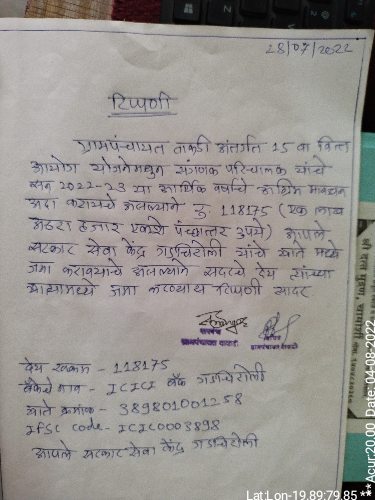 28/07/2022
टिप्पणी
ग्रामपंचायत ताकडी अंतर्गत 15 वा वित्त
आयोग योजनेमधुन संगणक परिचालक यांचे
सन 2022-23 या आर्थिक वर्षाचे अग्रिम मानधन
अदा करायचे असल्याने रु 118175 (एक लाख
अठरा हजार एकशे पंच्यात्तर रुपये) आपले
सरकार सेवा केंद्र गडचिरोली यांचे खाते मध्ये
जमा करावयाचे असल्याने सदरचे देय यांच्या
खात्यामध्ये जमा करण्यात टिप्पणी सादर
सरपंच
सचिव
देय रक्कम - 118175
बँकेचे नाव - ICICI बँक गडचिरोली
खाते क्रमांक - 389801001258
IFSC code - ICIC0003898
आपले सरकार सेवा केंद्र गडचिरोली
Lat:Lon-19.89:79.85 *** Acur:20.00 Date: 04-08-2022